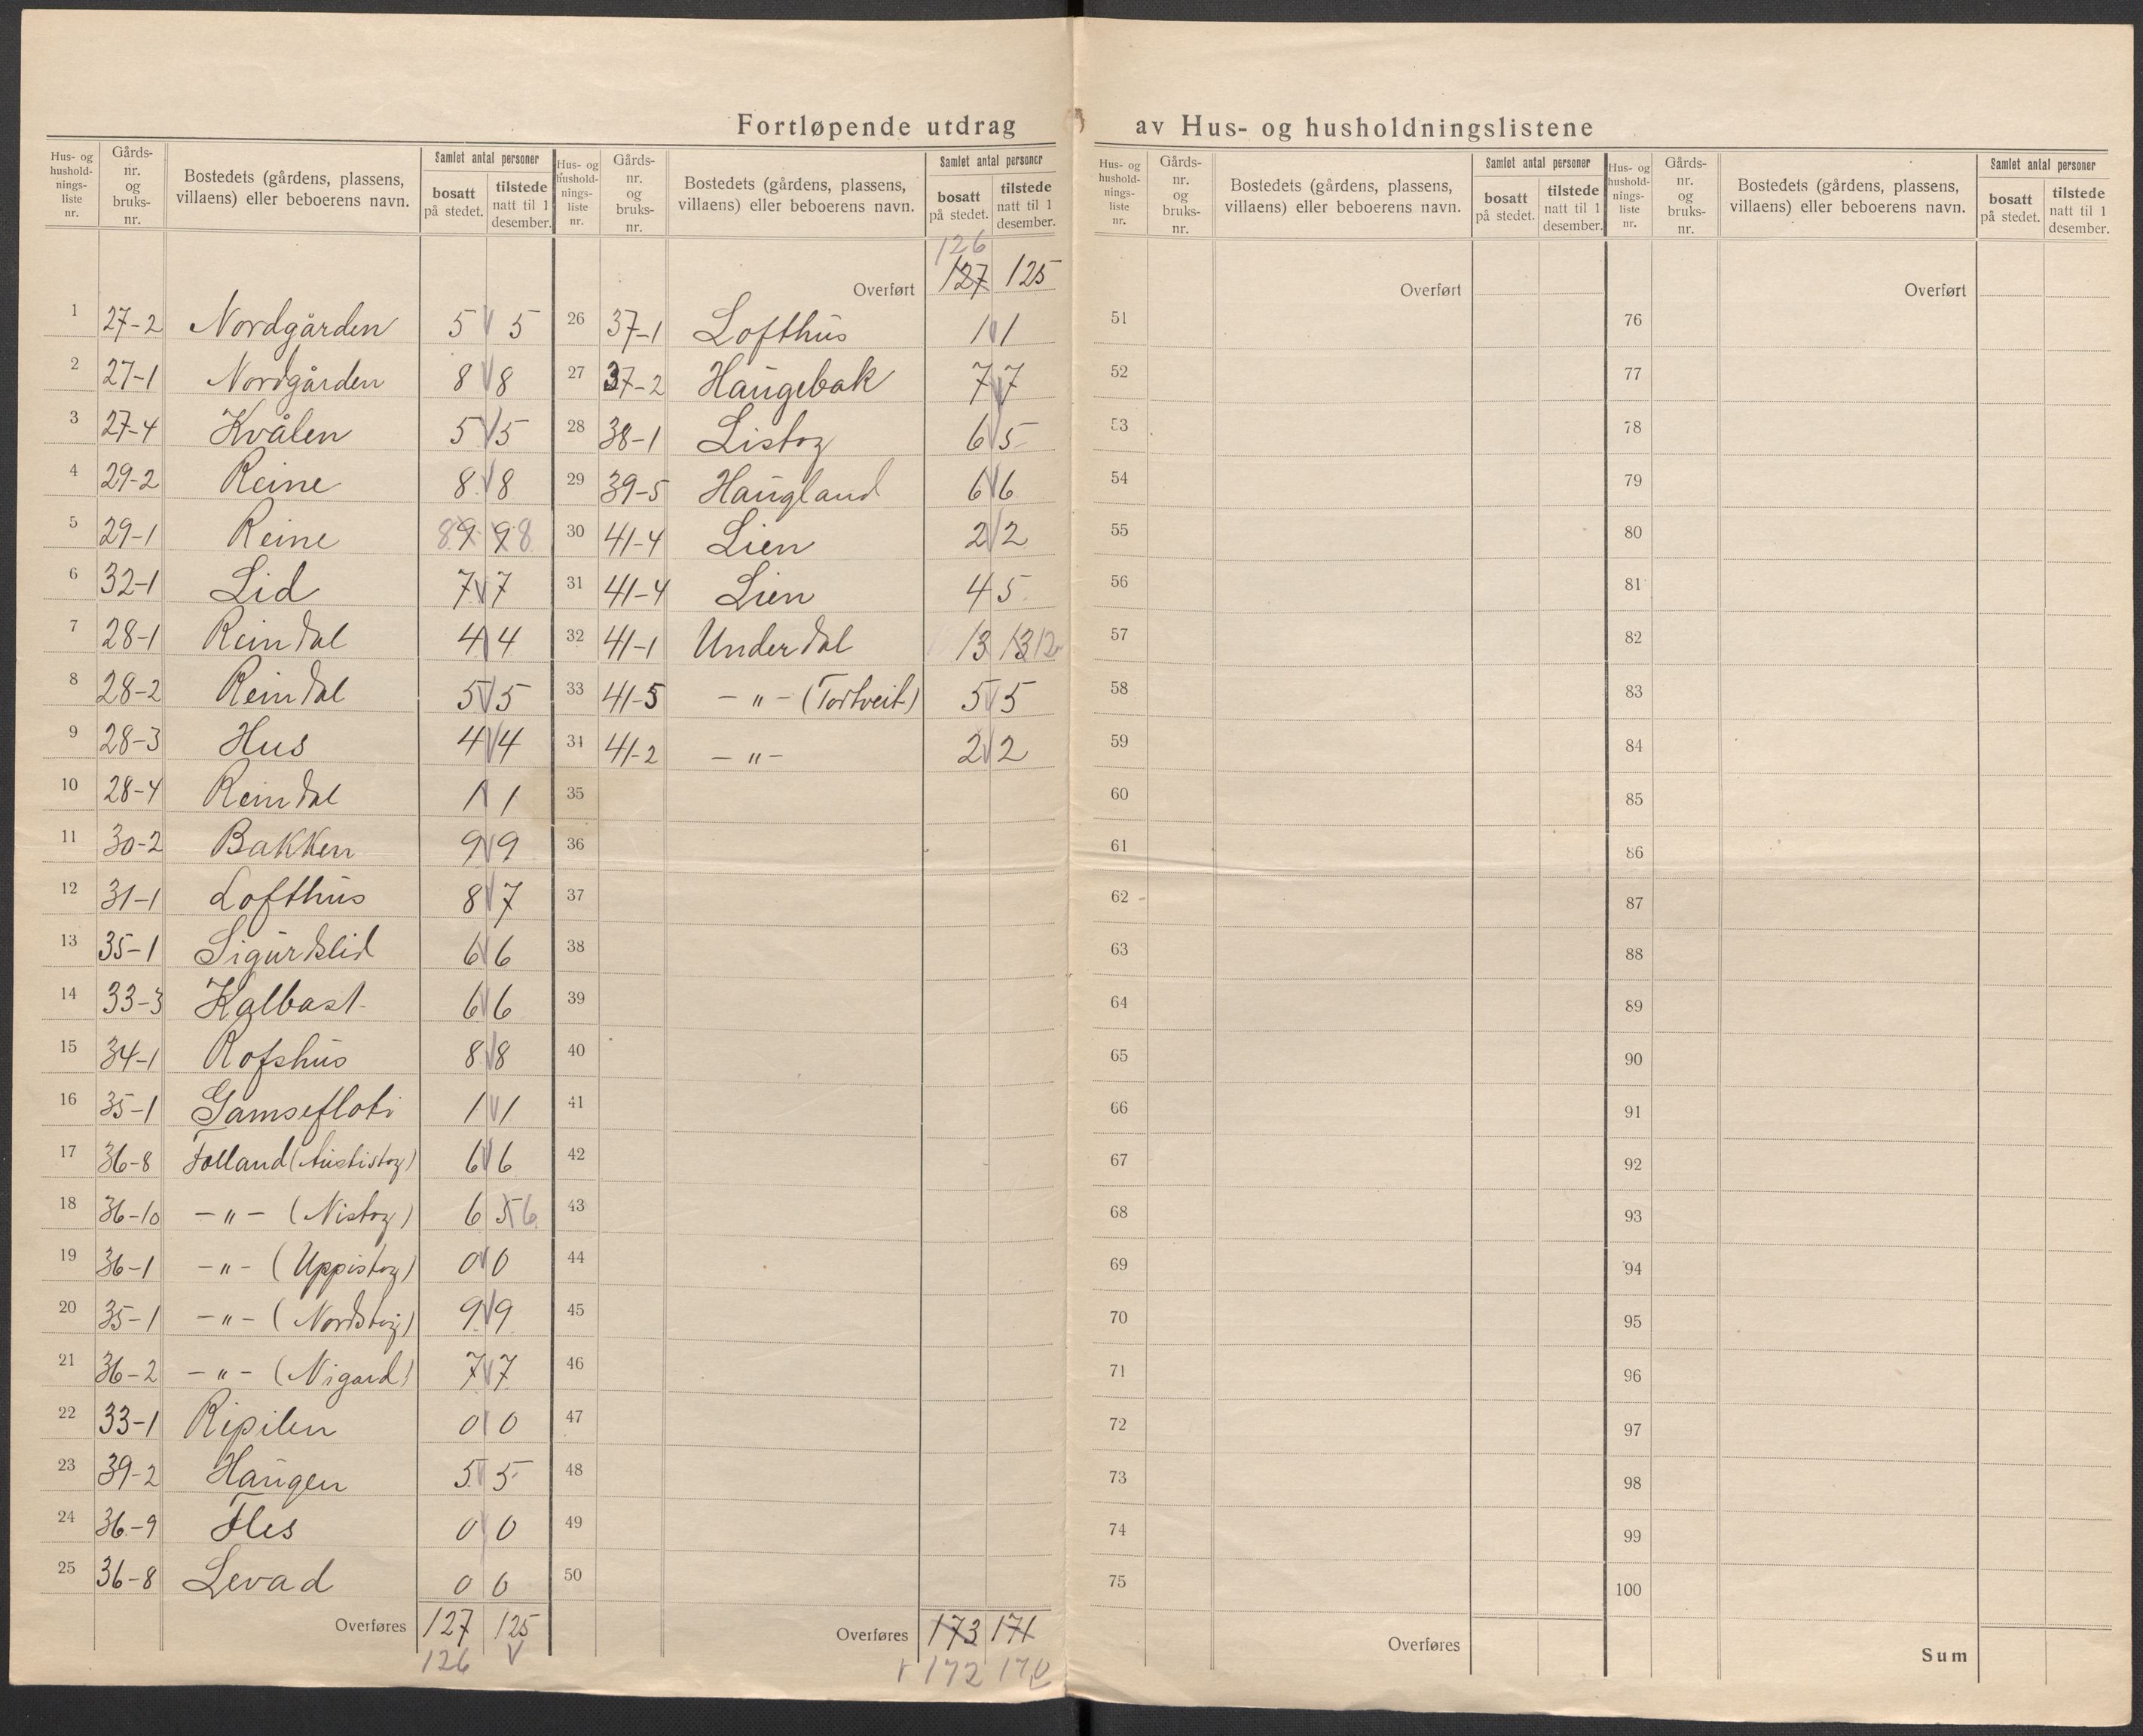 Fortløpende utdrag av Hus- og husholdningslistene
Hus- og hushold-nings-liste nr. Gårds-nr. og bruks-nr. Bostedets (gårdens, plassens, villaens) eller beboerens navn. Samlet antal personer bosatt på stedet. tilstede natt til 1 desember.
1 27-2 Nordgården 5 5
2 27-1 Nordgården 8 8
3 27-4 Kvålen 5 5
4 29-2 Reine 8 8
5 29-1 Reine 8 9 9 8
6 32-1 Lid 7 7
7 28-1 Reindal 4 4
8 28-2 Reindal 5 5
9 28-3 Hus 4 4
10 28-4 Reindal 1 1
11 30-2 Bakken 9 9
12 31-1 Lofthus 8 7
13 35-1 Sigurdslid 6 6
14 33-3 Kalbast 6 6
15 34-1 Rofshus 8 8
16 35-1 Gamsefloti 1 1
17 36-8 Folland (Austistog) 6 6
18 36-10 -"- (Nistog) 6 5 6
19 36-1 -"- (Uppistog) 0 0
20 35-1 -"- (Nordstog) 9 9
21 36-2 -"- (Nigard) 7 7
22 33-1 Ripilen 0 0
23 39-2 Haugen 5 5
24 36-9 Fles 0 0
25 36-8 Levad 0 0
Overføres 127 125
126 V
Hus- og hushold-nings-liste nr. Gårds-nr. og bruks-nr. Bostedets (gårdens, plassens, villaens) eller beboerens navn. Samlet antal personer bosatt på stedet. tilstede natt til 1 desember.
126
Overført 127 125
26 37-1 Lofthus 1 1
27 37-2 Haugebak 7 7
28 38-1 Listog 6 5
29 39-5 Haugland 6 6
30 41-4 Lien 2 2
31 41-4 Lien 4 5
32 41-1 Underdal 13 13 12
33 41-5 -"- (Tortveit) 5 5
34 41-2 -"- 2 2
35
36
37
38
39
40
41
42
43
44
45
46
47
48
49
50
Overføres 173 171
172 170
Hus- og hushold-nings-liste nr. Gårds-nr. og bruks-nr. Bostedets (gårdens, plassens, villaens) eller beboerens navn. Samlet antal personer bosatt på stedet. tilstede natt til 1 desember.
Overført
51
52
53
54
55
56
57
58
59
60
61
62
63
64
65
66
67
68
69
70
71
72
73
74
75
Overføres
Hus- og hushold-nings-liste nr. Gårds-nr. og bruks-nr. Bostedets (gårdens, plassens, villaens) eller beboerens navn. Samlet antal personer bosatt på stedet. tilstede natt til 1 desember.
Overført
76
77
78
79
80
81
82
83
84
85
86
87
88
89
90
91
92
93
94
95
96
97
98
99
100
Sum